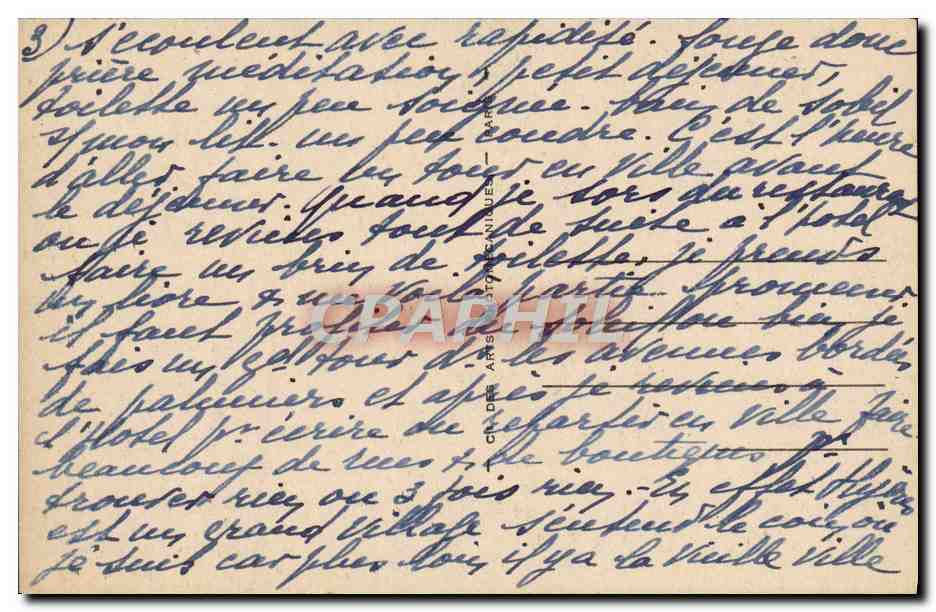 3) s'écoulent avec rapidité. Songe donc
prière méditation, petit déjeuner,
toilette un peu soignée. bain de soleil
s/ mon lit. un peu coudre. C'est l'heure
d'aller faire un tour en ville avant
le déjeuner. Quand je sors du restaurant
ou je reviens tout de suite à l'hotel
faire un brin de toilette, je prends
un livre & me voila partie promener
il faut profiter du soleil ou bien je
fais un gd tour ds les avenues bordées
de palmiers et après je reviens à
l'Hotel pr écrire ou repartir en ville faire
beaucoup de rues & de boutiques pr
trouver rien ou 3 fois rien. - En effet Hyères
est un grand village s'entend le coin où
je suis car plus loin il y a la vieille ville
CIE DES ARTS PHOTOMECANIQUES — PARIS
CPAPHIL